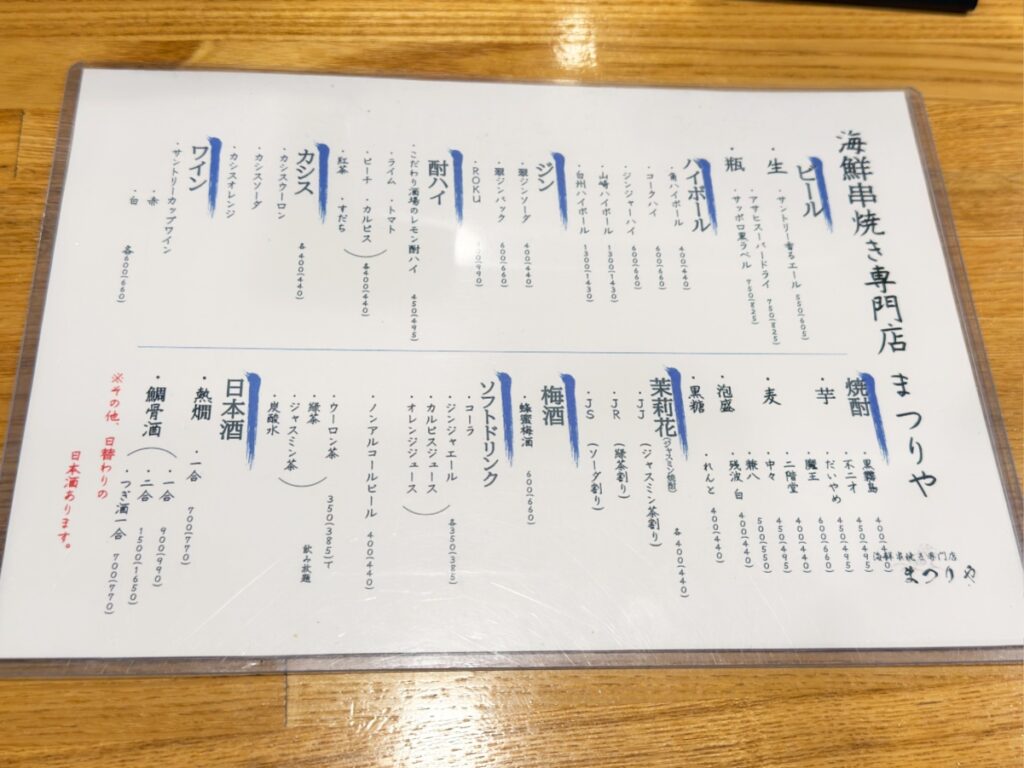 海鮮串焼き専門店 まつりや
ビール
・生 ・サントリー香るエール 550(605)
・瓶 ・アサヒスーパードライ 750(825)
・サッポロ黒ラベル 750(825)
ハイボール
・角ハイボール 400(440)
・コークハイ 600(660)
・ジンジャーハイ 600(660)
・山崎ハイボール 1300(1430)
・白州ハイボール 1300(1430)
ジン
・翠ジンソーダ 400(440)
・翠ジンバック 600(660)
・ROKU (990)
酎ハイ
・こだわり酒場のレモン酎ハイ 450(495)
・ライム ・トマト
・ピーチ ・カルピス
・紅茶 ・すだち
各400(440)
カシス
・カシスウーロン
・カシスソーダ
・カシスオレンジ
各400(440)
ワイン
・サントリーカップワイン
・赤
・白
各600(660)
焼酎
・芋 ・黒霧島 400(440)
・不二才 450(495)
・だいやめ 450(495)
・魔王 600(660)
・麦 ・二階堂 400(440)
・中々 450(495)
・兼八 500(550)
・泡盛 ・残波 白 400(440)
・黒糖 ・れんと 400(440)
茉莉花(ジャスミン焼酎)
・JJ (ジャスミン茶割り)
・JR (緑茶割り)
・JS (ソーダ割り)
各400(440)
梅酒
・蜂蜜梅酒 600(660)
ソフトドリンク
・コーラ
・ジンジャエール
・カルピスジュース
・オレンジジュース
各350(385)
・ノンアルコールビール 400(440)
・ウーロン茶
・緑茶
・ジャスミン茶
・炭酸水
350(385)で
飲み放題
日本酒
・熱燗 ・一合 700(770)
・鯛骨酒 ・一合 900(990)
・二合 1500(1650)
・つぎ酒一合 700(770)
※その他、日替わりの
日本酒あります。
海鮮串焼き専門店
まつりや